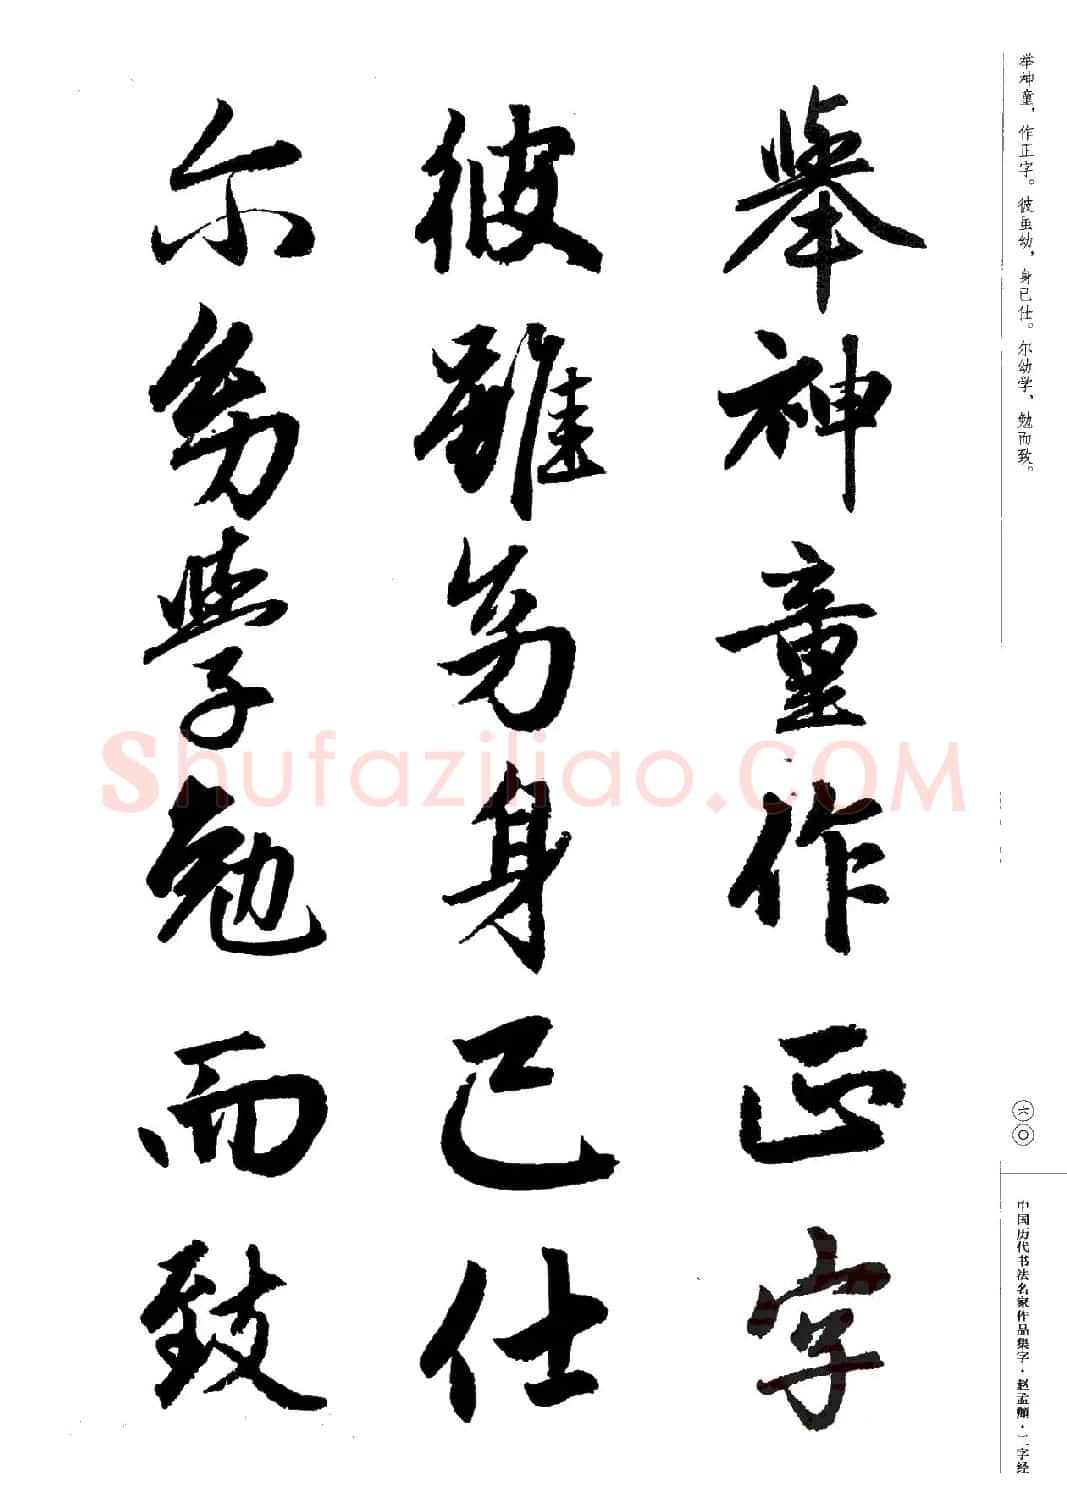 举神童，作正字。彼虽幼，身已仕。尔幼学，勉而致。
舉神童作正字
彼雖幼身已仕
尔幼學勉而致
六〇
中国历代书法名家作品集字·赵孟頫·三字经
Shufaziliao.COM